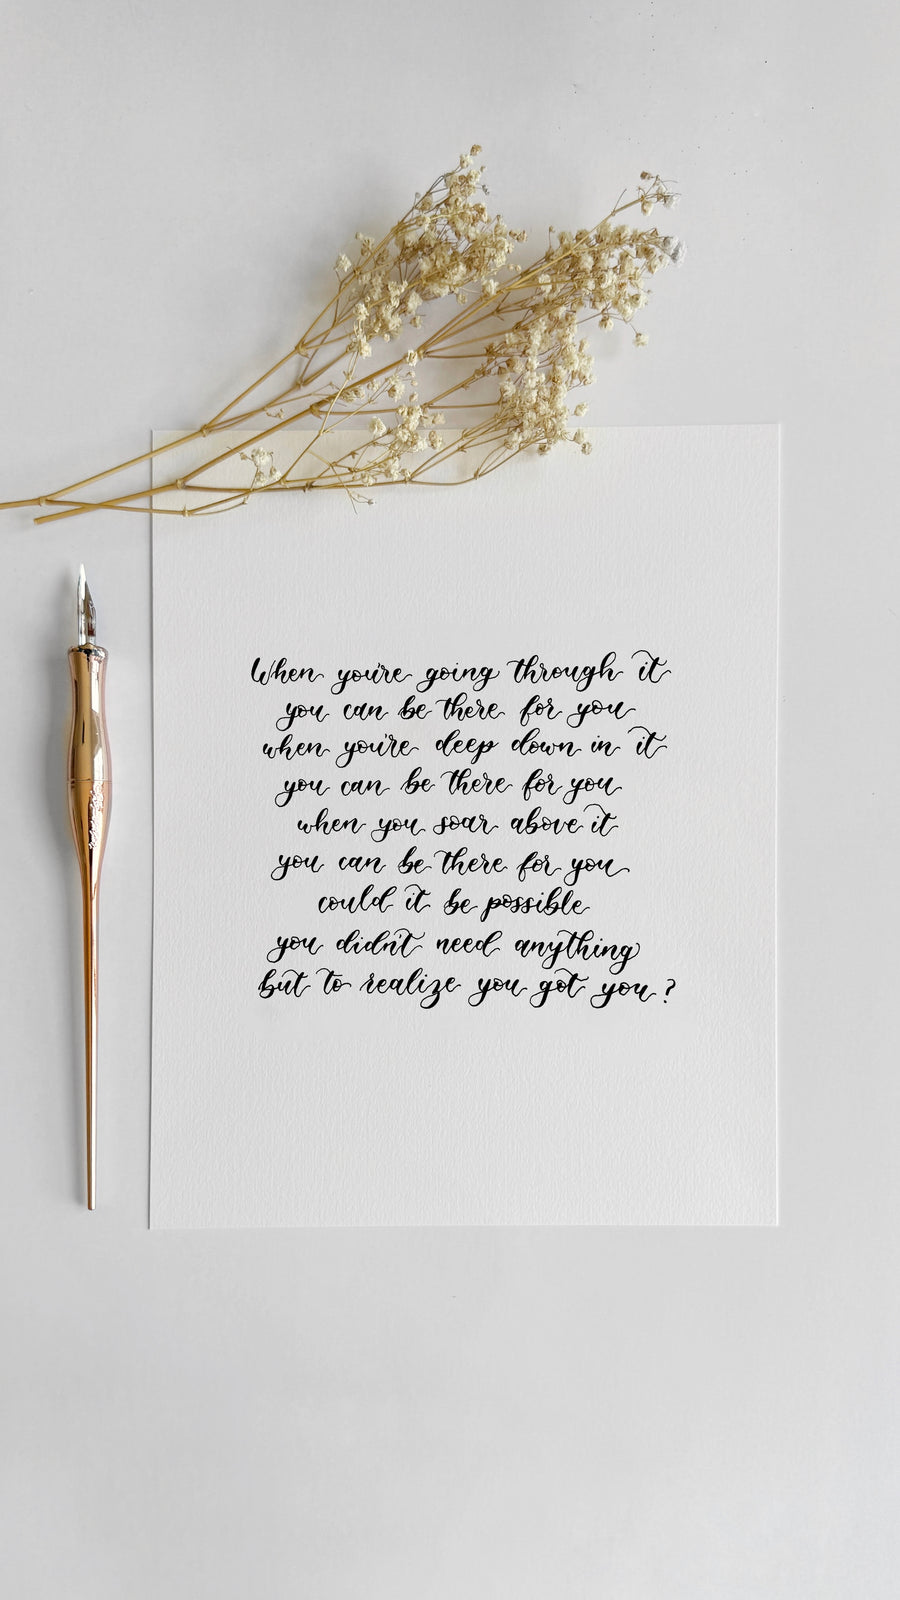 When you're going through it
you can be there for you
when you're deep down in it
you can be there for you
when you soar above it
you can be there for you
could it be possible
you didn't need anything
but to realize you got you?